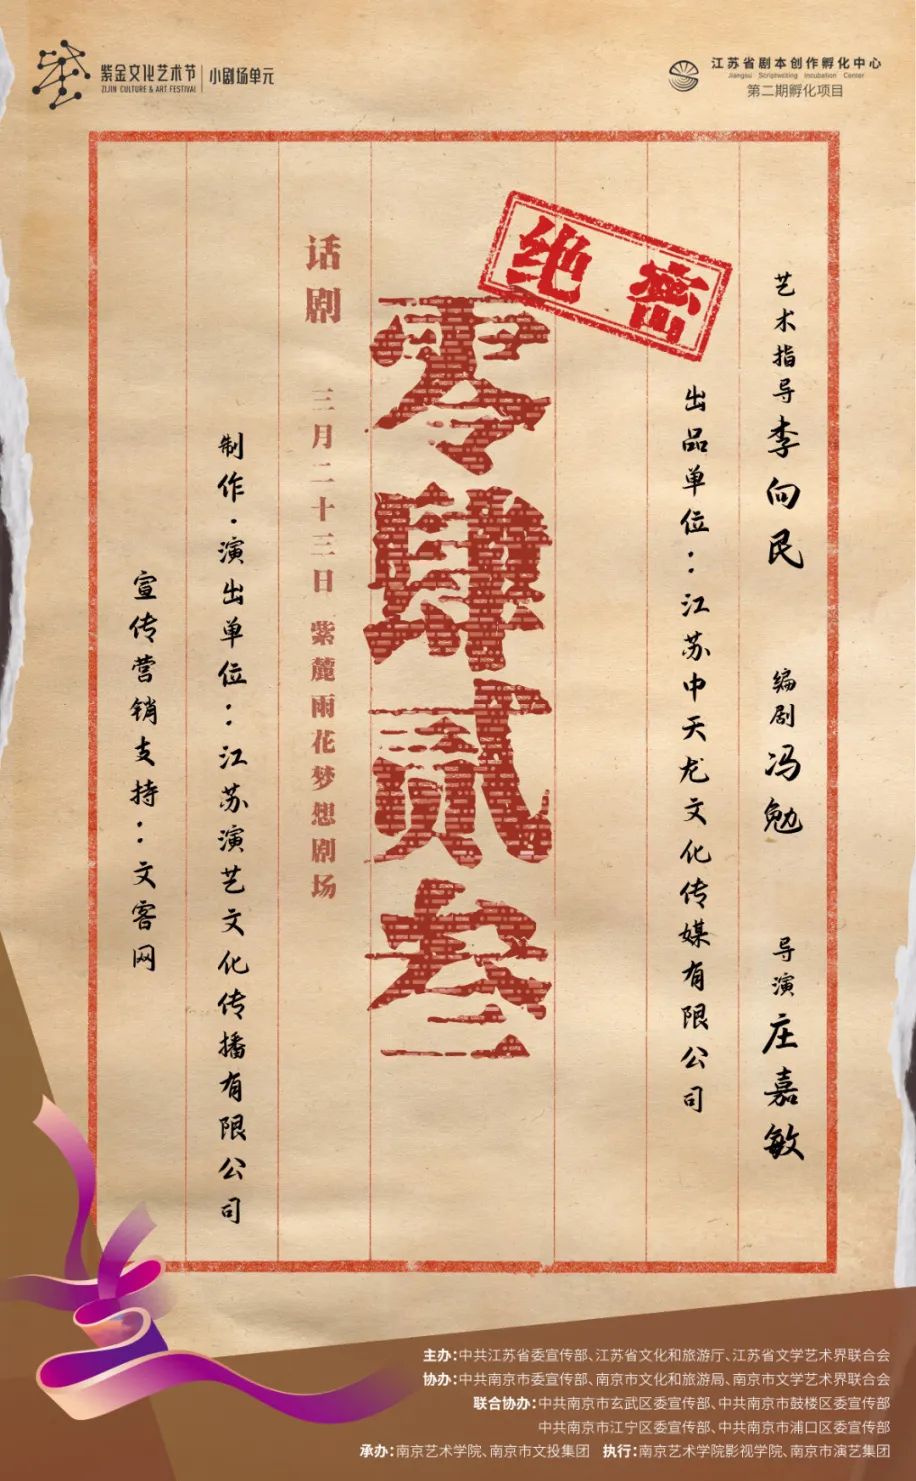 紫金文化艺术节 小剧场单元
ZIJIN CULTURE & ART FESTIVAL
江苏省剧本创作孵化中心
Jiangsu Scriptwriting Incubation Center
第二期孵化项目
绝密
艺术指导 李向民 编剧 冯勉 导演 庄嘉敏
出品单位：江苏中天龙文化传媒有限公司
零肆贰叁
话剧 三月二十三日 紫麓雨花梦想剧场
制作·演出单位：江苏演艺文化传播有限公司
宣传营销支持：文客网
主办：中共江苏省委宣传部、江苏省文化和旅游厅、江苏省文学艺术界联合会
协办：中共南京市委宣传部、南京市文化和旅游局、南京市文学艺术界联合会
联合协办：中共南京市玄武区委宣传部、中共南京市鼓楼区委宣传部
中共南京市江宁区委宣传部、中共南京市浦口区委宣传部
承办：南京艺术学院、南京市文投集团 执行：南京艺术学院影视学院、南京市演艺集团